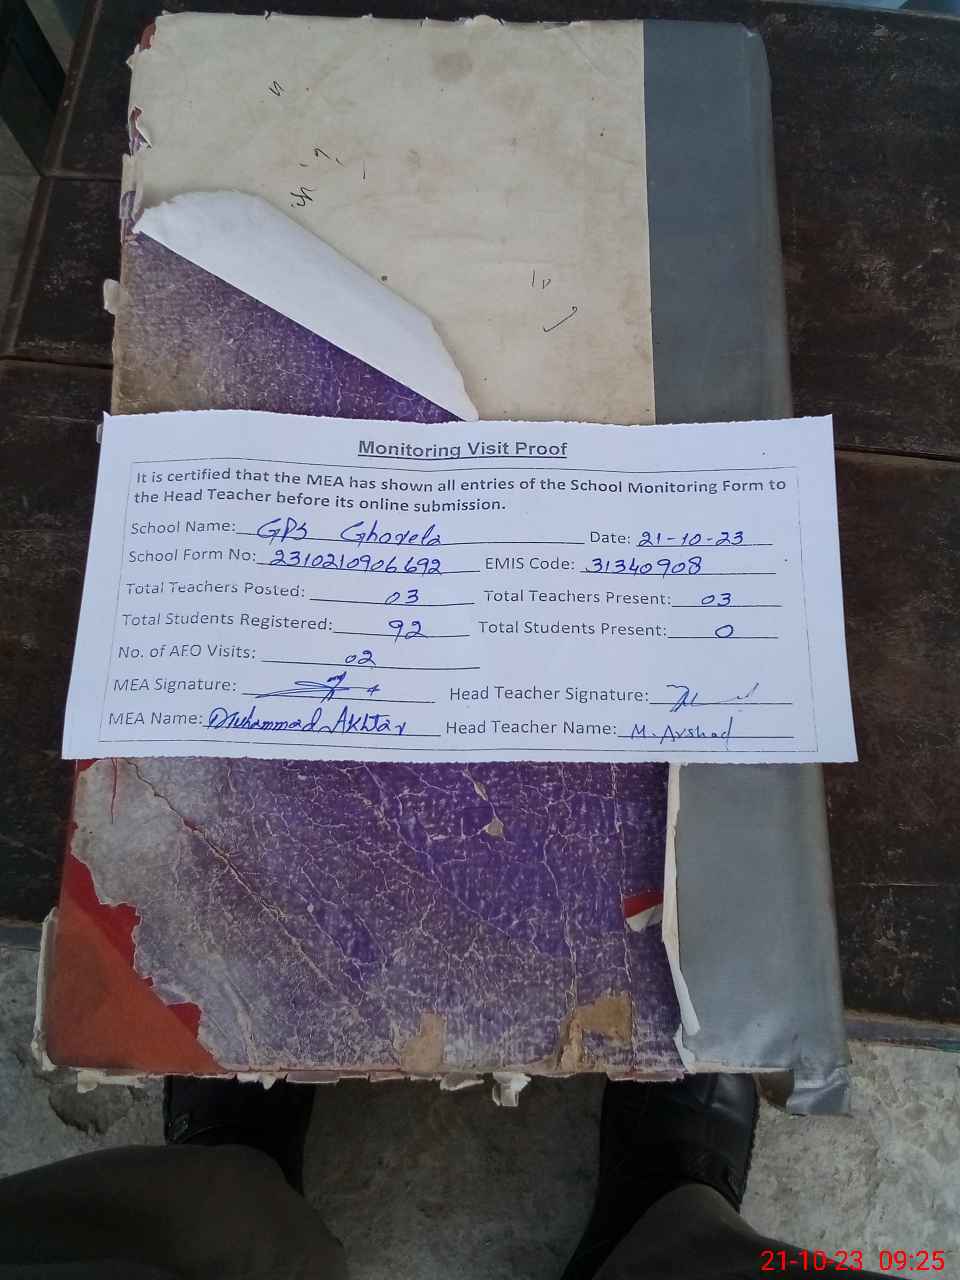 Monitoring Visit Proof
It is certified that the MEA has shown all entries of the School Monitoring Form to
the Head Teacher before its online submission.
School Name: GPS Ghovela Date: 21-10-23
School Form No: 2310210906692 EMIS Code: 31340908
Total Teachers Posted: 03 Total Teachers Present: 03
Total Students Registered: 92 Total Students Present: 0
No. of AEO Visits: 02
MEA Signature: Head Teacher Signature:
MEA Name: Muhammad Akhtar Head Teacher Name: M. Arshad
21-10-23 09:25